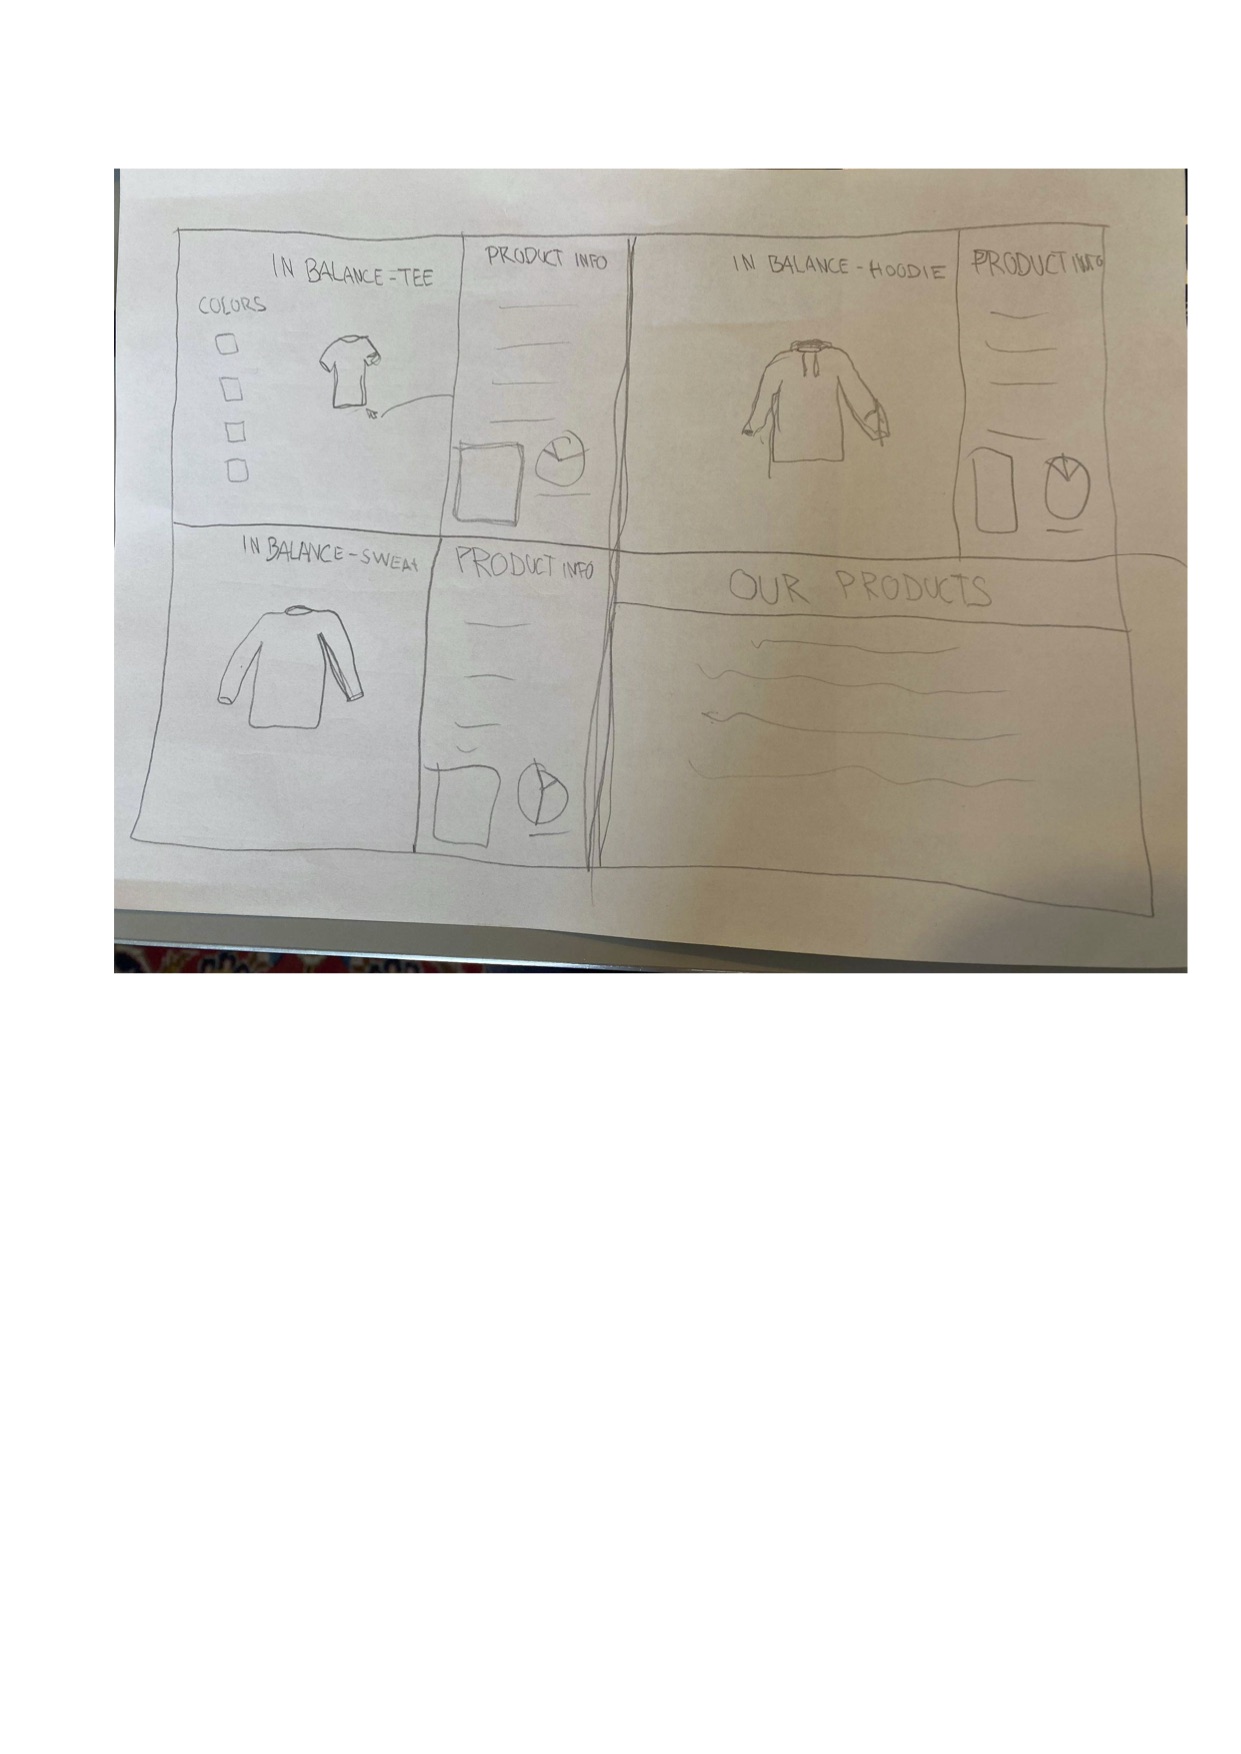 IN BALANCE-TEE
PRODUCT INFO
COLORS
IN BALANCE-HOODIE
PRODUCT INFO
IN BALANCE-SWEAT
PRODUCT INFO
OUR PRODUCTS